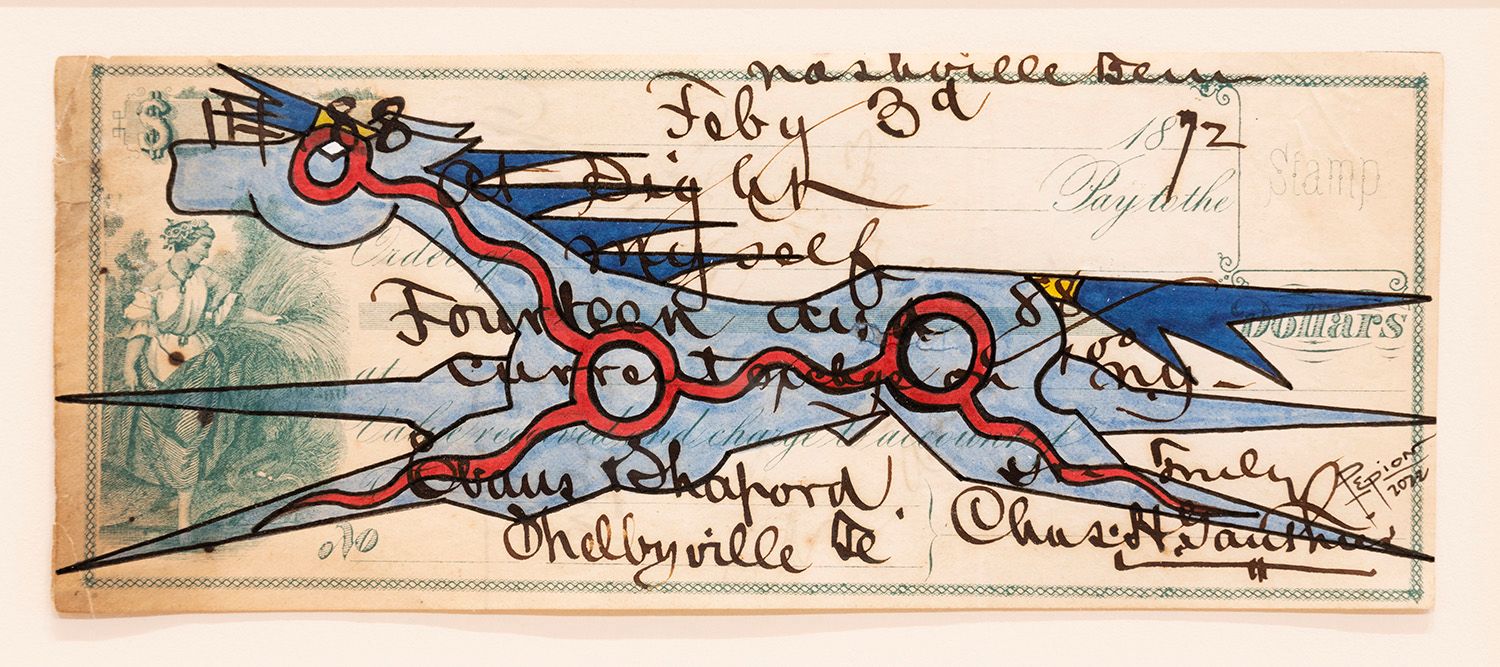 Nashville Tenn
Feby 3d 1872
$ 14 88
At Sight Pay to the
Stamp
Order of Myself
Fourteen and 88/100 Dollars
at Current
Value received and charge to account of
Evans Shapard Truly
Shelbyville Te Chas. H.
No
Pepion
2022